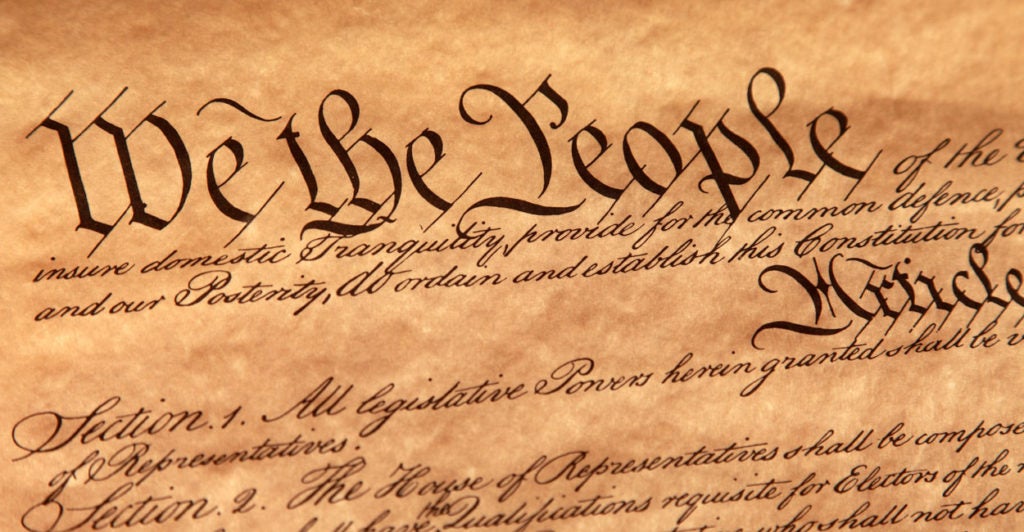 We the People of the
insure domestic Tranquility, provide for the common defence, p
and our Posterity, do ordain and establish this Constitution for
Article
Section. 1. All legislative Powers herein granted shall be v
of Representatives.
Section. 2. The House of Representatives shall be compose
have the Qualifications requisite for Electors of the
who shall not hav